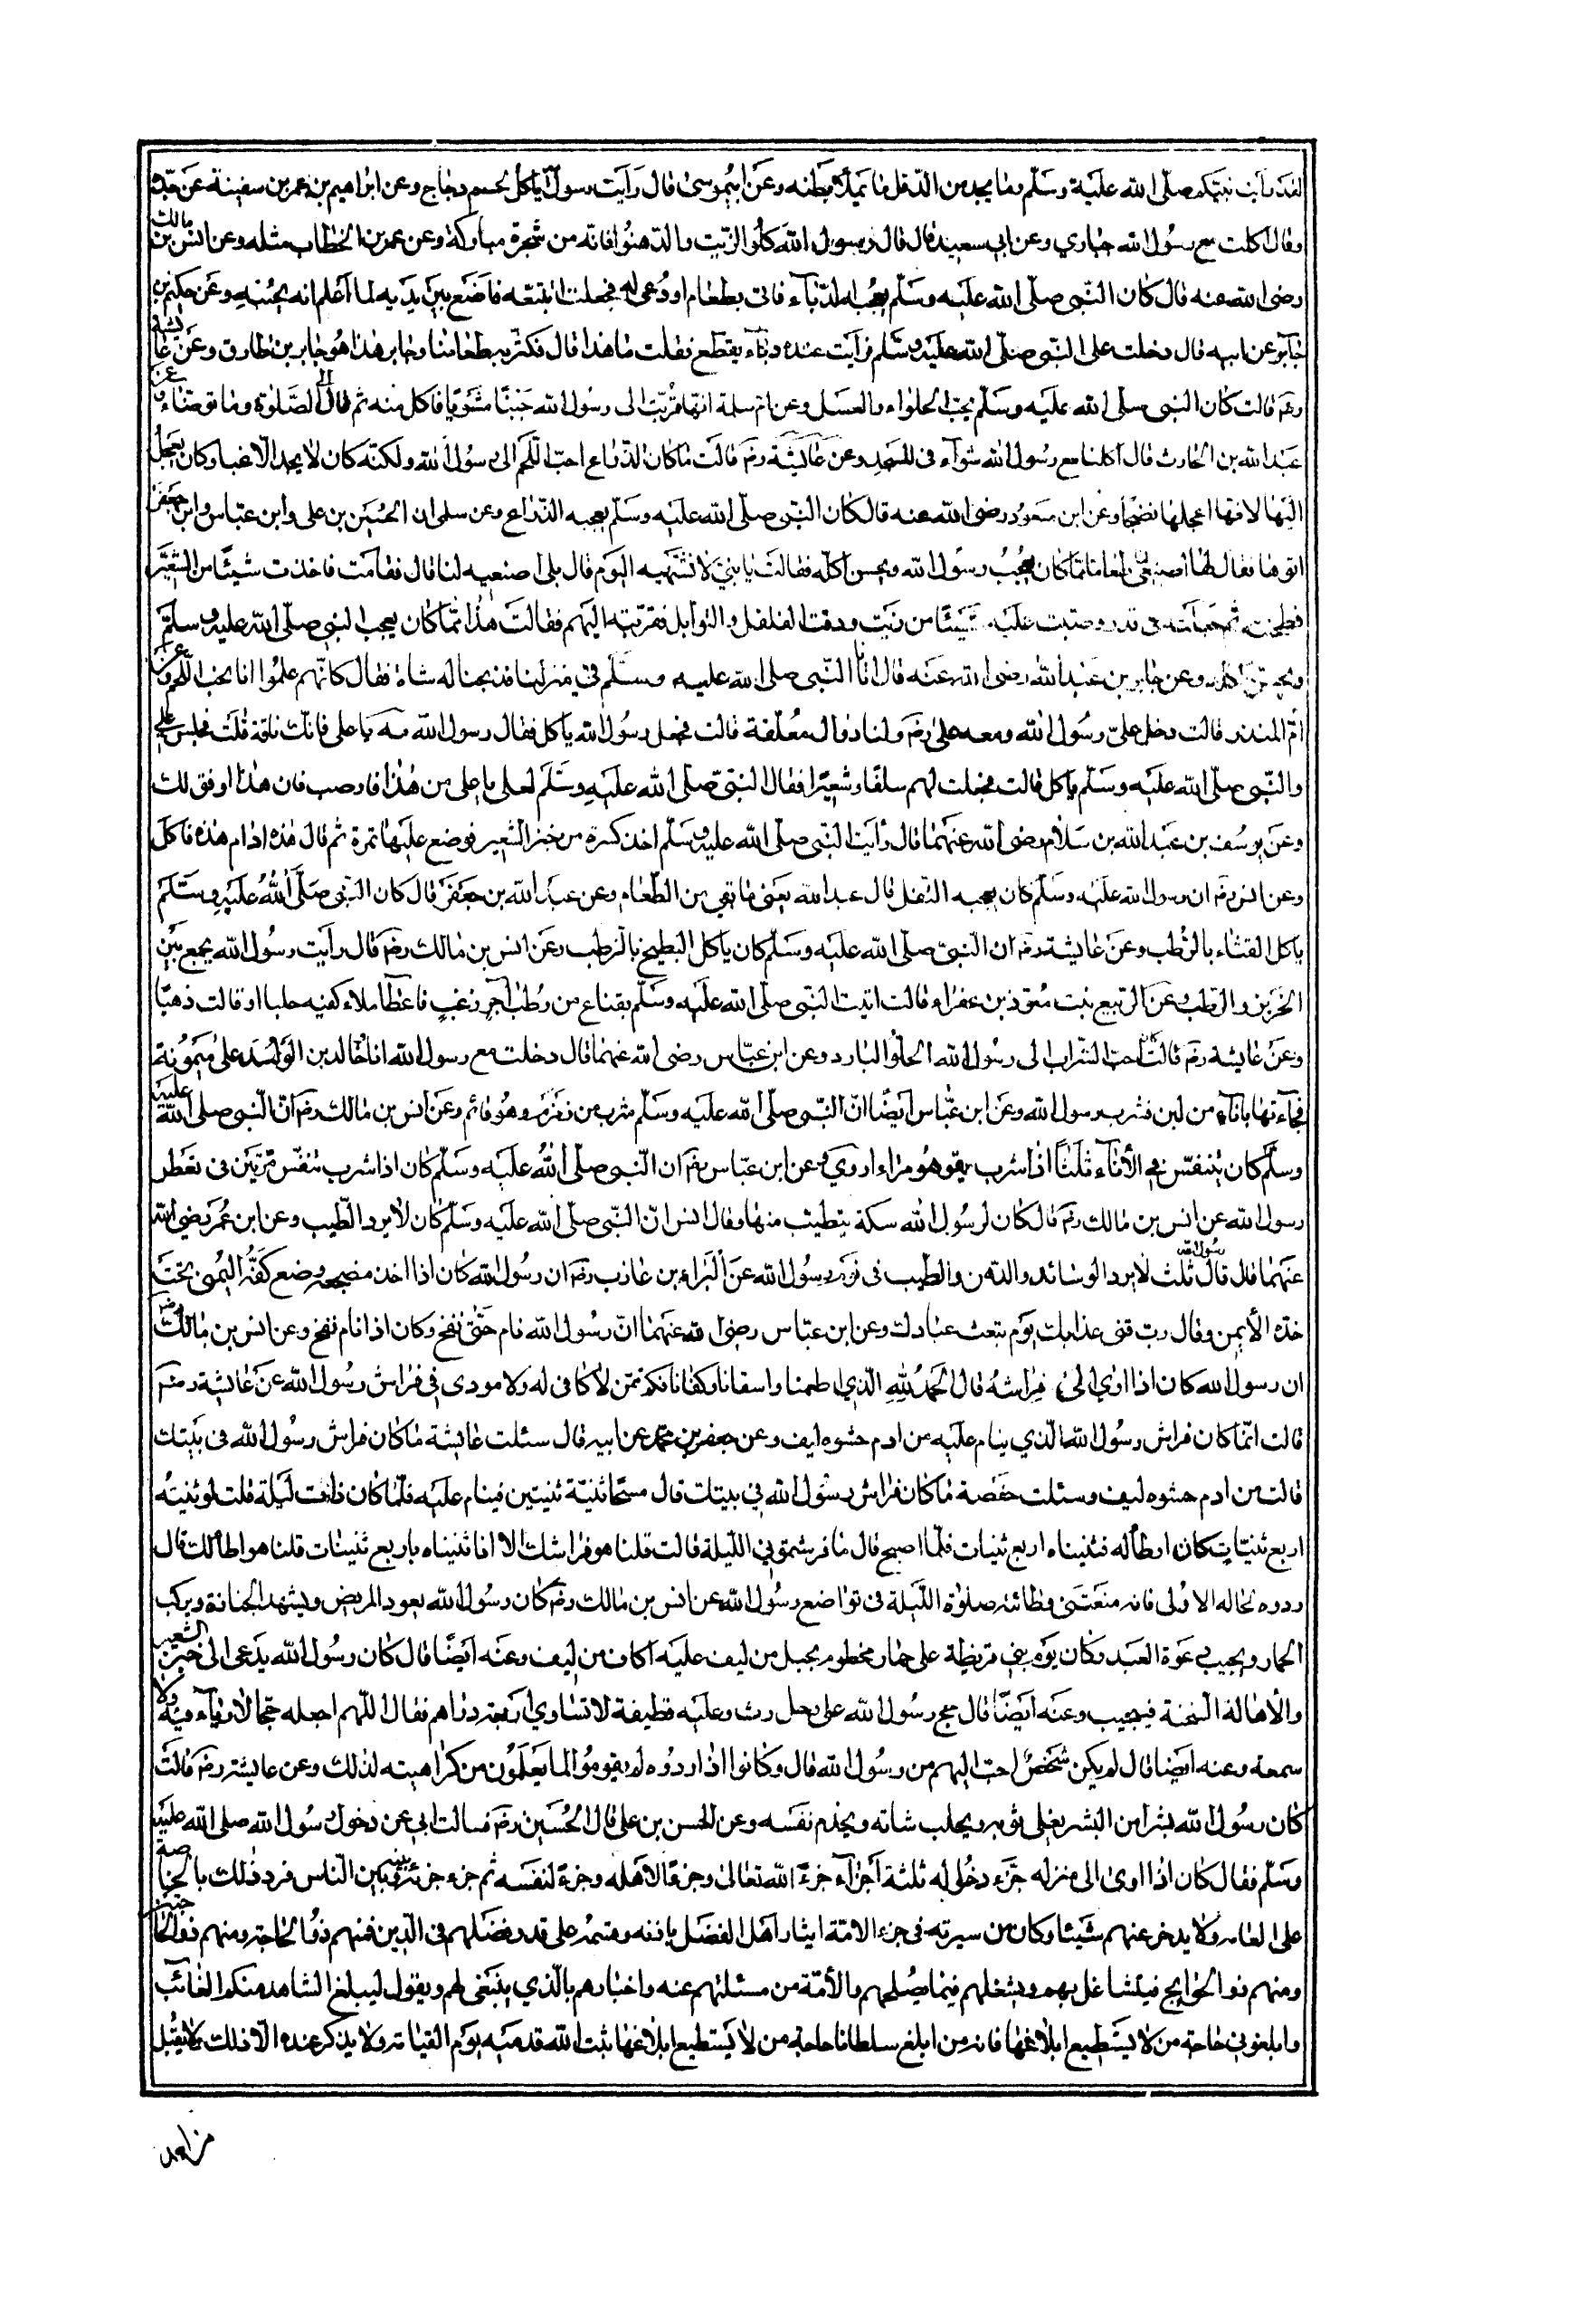 لقد رأيت نبيكم صلى الله عليه وسلم وما يجد من الدقل ما يملأ بطنه وعن ابيموسى قال رأيت رسول الله يأكل لحم دجاج وعن ابراهيم بن عمر بن سفينة عن جده
وقال اكلت مع رسول الله حبارى وعن ابى سعيد قال قال رسول الله كلوا الزيت والدهنوا فانه من شجرة مباركة وعن عمر بن الخطاب مثله وعن انس بن مالك
رضى الله عنه قال كان النبى صلى الله عليه وسلم يعجبه الدباء فاتى بطعام او دعى له فجعلت اتتبعه فاضع بين يديه لما اعلم انه يحبه وعن حكيم بن
جابر عن ابيه قال دخلت على النبى صلى الله عليه وسلم فرأيت عنده دباء يقطع فقلت ما هذا قال نكثر به طعامنا وجابر هذا هو جابر بن طارق وعن عايشة
رضم قالت كان النبى صلى الله عليه وسلم يحب الحلواء والعسل وعن ام سلمة انها قربت الى رسول الله جنبا مشويا فاكل منه ثم قال الى الصلوة وما توضأ وعن
عبد الله بن الحارث قال اكلنا مع رسول الله شواء فى المسجد وعن عايشة رضم قالت ما كان الذراع احب اللحم الى رسول الله ولكنه كان لا يجد الا غبا وكان يعجل
اليها لانها اعجلها نضجا وعن ابن مسعود رضى الله عنه قال كان النبى صلى الله عليه وسلم يعجبه الذراع وعن سلمى ان الحسين بن على وابن عباس وابن جعفر
اتوها فقال لها اصنعى لنا طعاما مما كان يعجب رسول الله ويحسن اكله فقالت يا بنى لا تشتهيه اليوم قال بلى اصنعيه لنا قال فقامت فاخذت شيئا من الشعير
فطحنته ثم جعلته فى قدر وصبت عليه شيئا من زيت ودقت الفلفل والتوابل فقربته اليهم فقالت هذا مما كان يعجب النبى صلى الله عليه وسلم
ويحسن اكله وعن جابر بن عبد الله رضى الله عنه قال اتانا النبى صلى الله عليه وسلم فى منزلنا فذبحنا له شاة فقال كانهم علموا انا نحب اللحم وعن
ام المنذر قالت دخل على رسول الله ومعه على رضم ولنا دوال معلقة قالت فجعل رسول الله يأكل فقال رسول الله مه يا على فانك ناقه قلت فجلس على
والنبى صلى الله عليه وسلم يأكل قالت فجعلت لهم سلقا وشعيرا فقال النبى صلى الله عليه وسلم لعلى يا على من هذا فاصب فان هذا اوفق لك
وعن يوسف بن عبد الله بن سلام رضى الله عنهما قال رأيت النبى صلى الله عليه وسلم اخذ كسرة من خبز الشعير فوضع عليها تمرة ثم قال هذه ادام هذه فاكل
وعن انس رضم ان رسول الله عليه وسلم كان يعجبه الثفل قال عبد الله يعنى ما بقى من الطعام وعن عبد الله بن جعفر قال كان النبى صلى الله عليه وسلم
يأكل القثاء بالرطب وعن عايشة رضم ان النبى صلى الله عليه وسلم كان يأكل البطيخ بالرطب وعن انس بن مالك رضم قال رأيت رسول الله يجمع بين
الخربز والرطب وعن الربيع بنت معوذ بن عفراء قالت اتيت النبى صلى الله عليه وسلم بقناع من رطب اجر زغب فاعطا ملاء كفيه حليا او قالت ذهبا
وعن عايشة رضم قالت كان احب الشراب الى رسول الله الحلو البارد وعن ابن عباس رضى الله عنهما قال دخلت مع رسول الله انا خالد بن الوليد على ميمونة
فجاءتها باناء من لبن فشرب رسول الله وعن ابن عباس ايضا ان النبى صلى الله عليه وسلم شرب من زمزم وهو قائم وعن انس بن مالك رضم ان النبى صلى الله عليه
وسلم كان يتنفس فى الأناء ثلثا اذا شرب يقو هو مراء اروى وعن ابن عباس رضم ان النبى صلى الله عليه وسلم كان اذا شرب تنفس مرتين فى تعطر
رسول الله عن انس بن مالك رضم قال كان لرسول الله سكة يتطيب منها وقال انس ان النبى صلى الله عليه وسلم كان لا يرد الطيب وعن ابن عمر رضى الله
عنهما قال قال رسول الله ثلث لا يرد الوسائد والدهن والطيب فى نوم رسول الله عن البراء بن عازب رضم ان رسول الله كان اذا اخذ مضجعه وضع كفه اليمنى تحت
خده الأيمن وقال رب قنى عذابك يوم تبعث عبادك وعن ابن عباس رضى الله عنهما ان رسول الله نام حتى نفخ وكان اذا نام نفخ وعن انس بن مالك رضم
ان رسول الله كان اذا اوى الى فراشه قال الحمد لله الذى اطمنا واسقانا وكفانا فكم ممن لا كافى له ولا مودى فى فراش رسول الله عن عايشة رضم
قالت انما كان فراش رسول الله الذى ينام عليه من ادم حشوه ليف وعن جعفر بن محمد عن ابيه قال سئلت عايشة ما كان فراش رسول الله فى بيتك
قالت من ادم حشوه ليف وسئلت حفصة ما كان فراش رسول الله فى بيتك قال مسحا ثنية ثنيتين فينام عليه فلما كان ذات ليلة قلت لو ثنيته
اربع ثنيات كان اوطأ له فثنيناه اربع ثنيات فلما اصبح قال ما فرشتمونى الليلة قالت قلنا هو فراشك الا انا ثنيناه باربع ثنيات قلنا هو اوطألك قال
ردوه لحاله الاولى فانه منعتنى وطائته صلوة الليلة فى تواضع رسول الله عن انس بن مالك رضم كان رسول الله يعود المريض ويشهد الجنازة ويركب
الحمار ويجيب دعوة العبد وكان يوم بنى قريظة على حمار مخطوم بحبل من ليف عليه اكاف من ليف وعنه ايضا قال كان رسول الله يدعى الى خبز الشعير
والأهالة السنخة فيجيب وعنه ايضا قال حج رسول الله على رحل رث وعليه قطيفة لا تساوى اربعة دراهم فقال اللهم اجعله حجا لا رياء فيه ولا
سمعة وعنه ايضا قال لم يكن شخص احب اليهم من رسول الله قال وكانوا اذا اردوه لم يقوموا لما يعلمون من كراهيته لذلك وعن عايشة رضم قالت
كان رسول الله بشرا من البشر يفلى ثوبه ويحلب شاته ويخدم نفسه وعن الحسن بن على قال الحسين رضم فسالت ابى عن دخول رسول الله صلى الله عليه
وسلم فقال كان اذا اوى الى منزله جزء دخوله ثلثة أجزاء جزء الله تعالى وجزء لاهله وجزء لنفسه ثم جزء جزئه بينه وبين الناس فرد ذلك بالخاصة
على العامه ولا يدخر عنهم شيئا وكان من سيرته فى جزء الامة ايثار اهل الفضل باذنه وقسمه على قدر فضلهم فى الدين فمنهم ذو الحاجة ومنهم ذو الحاجتين
ومنهم ذو الحوايج فيتشاغل بهم ويشغلهم فيما يصلحهم والأمة من مسئلتهم عنه واخبارهم بالذى ينبغى لهم ويقول ليبلغ الشاهد منكم الغائب
وابلغونى حاجة من لا يستطيع ابلاغها فانه من ابلغ سلطانا حاجة من لا يستطيع ابلاغها ثبت الله قدميه يوم القيامة ولا يذكر عنده الا ذلك ولا يقبل